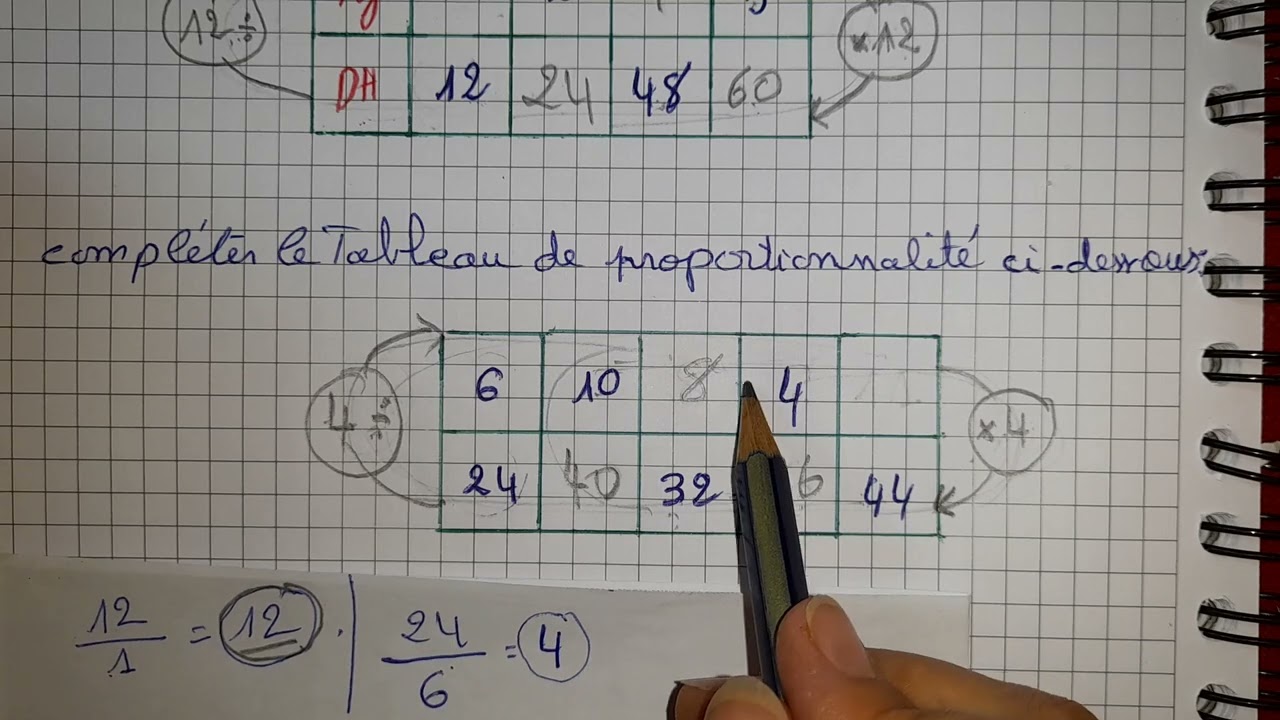 12 ÷ ×12
DH 12 24 48 60
compléter le Tableau de proportionnalité ci-dessous:
6 10 8 4
4 ÷ × 4
24 40 32 6 44
12/1 = 12 . | 24/6 = 4